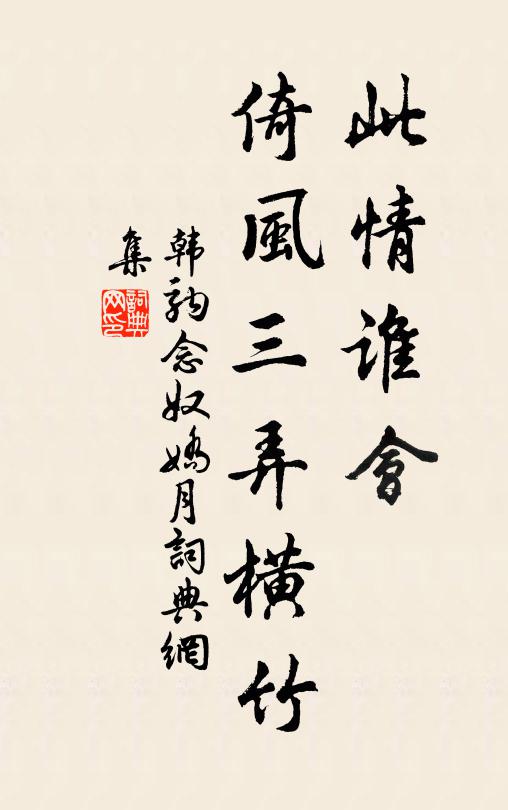 此情誰會
倚風三弄橫竹
韩駒念奴嬌月詞典網
集
詞典
网印